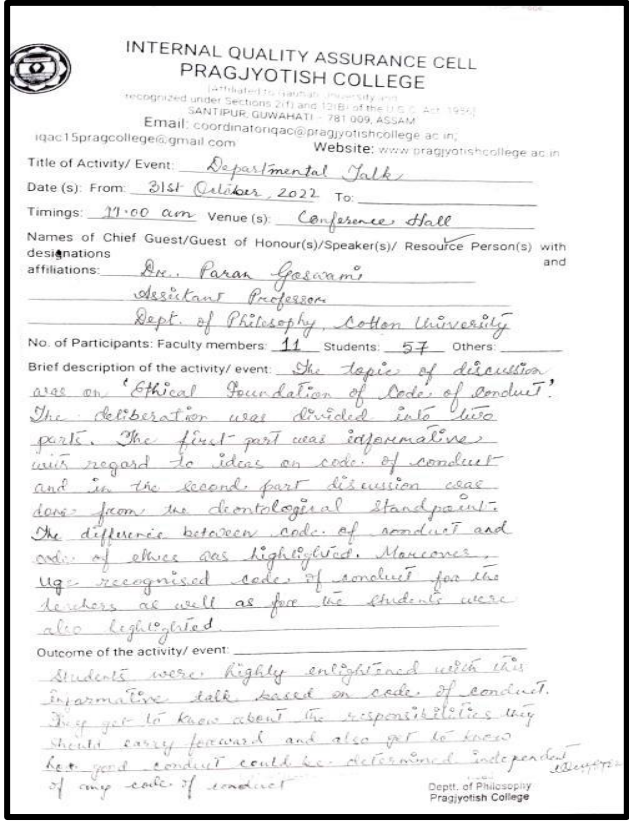 INTERNAL QUALITY ASSURANCE CELL
PRAGJYOTISH COLLEGE
(Affiliated to Gauhati University and
recognized under Sections 2(f) and 12(B) of the U.G.C. Act, 1956)
SANTIPUR, GUWAHATI - 781 009, ASSAM
Email: coordinatoriqac@pragjyotishcollege.ac.in;
iqac15pragcollege@gmail.com
Website: www.pragjyotishcollege.ac.in
Title of Activity/ Event: Departmental Talk
Date (s): From: 31st October, 2022 To:
Timings: 11.00 am Venue (s): Conference Hall
Names of Chief Guest/Guest of Honour(s)/Speaker(s)/ Resource Person(s) with
designations and
affiliations: Dr. Paran Goswami
Assistant Professor
Dept. of Philosophy, Cotton University
No. of Participants: Faculty members: 11 Students: 57 Others:
Brief description of the activity/ event: The topic of discussion
was on 'Ethical Foundation of Code of Conduct'.
The deliberation was divided into two
parts. The first part was informative
with regard to ideas on code of conduct
and in the second part discussion was
done from the deontological standpoint.
The difference between code of conduct and
code of ethics was highlighted. Moreover,
recognised code of conduct for the
teachers as well as for the students were
also highlighted.
Outcome of the activity/ event:
Students were highly enlightened with this
informative talk based on code of conduct.
They got to know about the responsibilities they
should carry forward and also got to know
how good conduct could be determined independent
of any code of conduct
Deptt. of Philosophy
Pragjyotish College